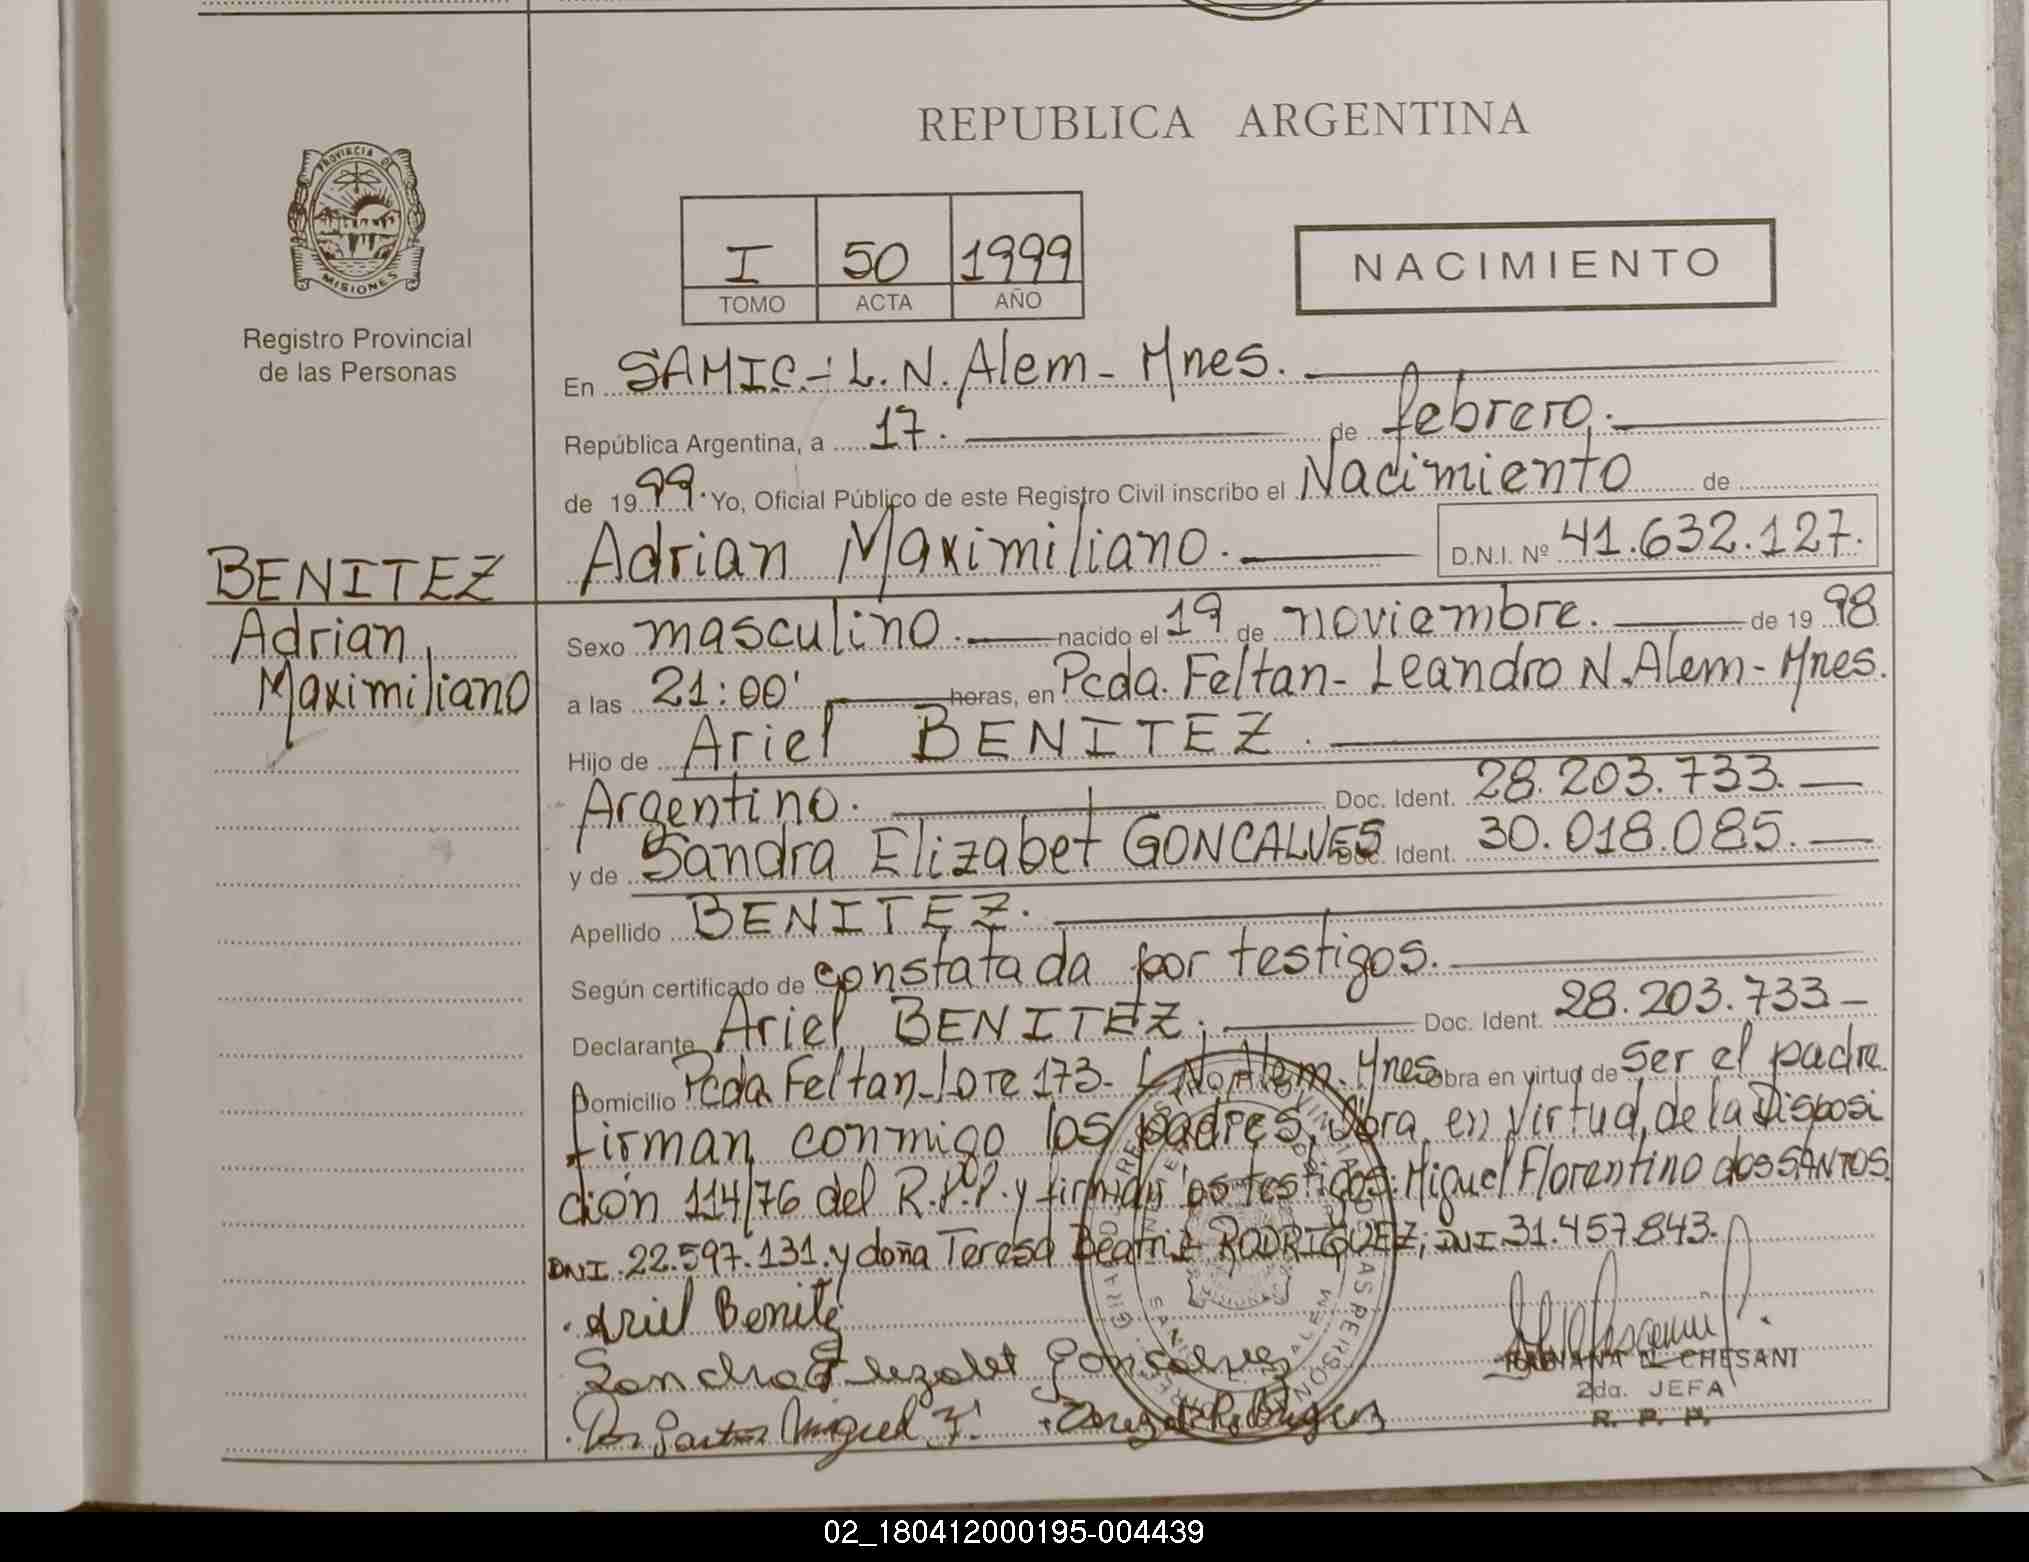 REPUBLICA ARGENTINA
PROVINCIA DE
MISIONES
Registro Provincial
de las Personas
I 50 1999
TOMO ACTA AÑO
NACIMIENTO
En SAMIC.- L. N. Alem - Mnes.
República Argentina, a 17. de febrero.
de 1999. Yo, Oficial Público de este Registro Civil inscribo el Nacimiento de
BENITEZ
Adrian Maximiliano. D.N.I. Nº 41.632.127.
Adrian
Maximiliano
Sexo masculino. nacido el 19 de noviembre. de 1998
a las 21:00' horas, en Pcda. Feltan - Leandro N. Alem - Mnes.
Hijo de Ariel BENITEZ.
Argentino. Doc. Ident. 28.203.733.
y de Sandra Elizabet GONCALVES Doc. Ident. 30.018.085.
Apellido BENITEZ.
Según certificado de constatada por testigos.
Declarante Ariel BENITEZ; Doc. Ident. 28.203.733
Domicilio Pcda Feltan - Lote 173 - L. N. Alem. Mnes Obra en virtud de ser el padre
firman conmigo los padres, Obra en virtud de la Disposi
ción 114/76 del R.P.P. y firman los testigos: Miguel Florentino dos SANTOS
DNI 22.597.131. y doña Teresa Beatriz RODRIGUEZ; DNI 31.457.843.
Ariel Benite
Sandra Elezabet Goncalves
Dos Santos Miguel F.
CHESANI
2da. JEFA
R. P. P.
02_180412000195-004439